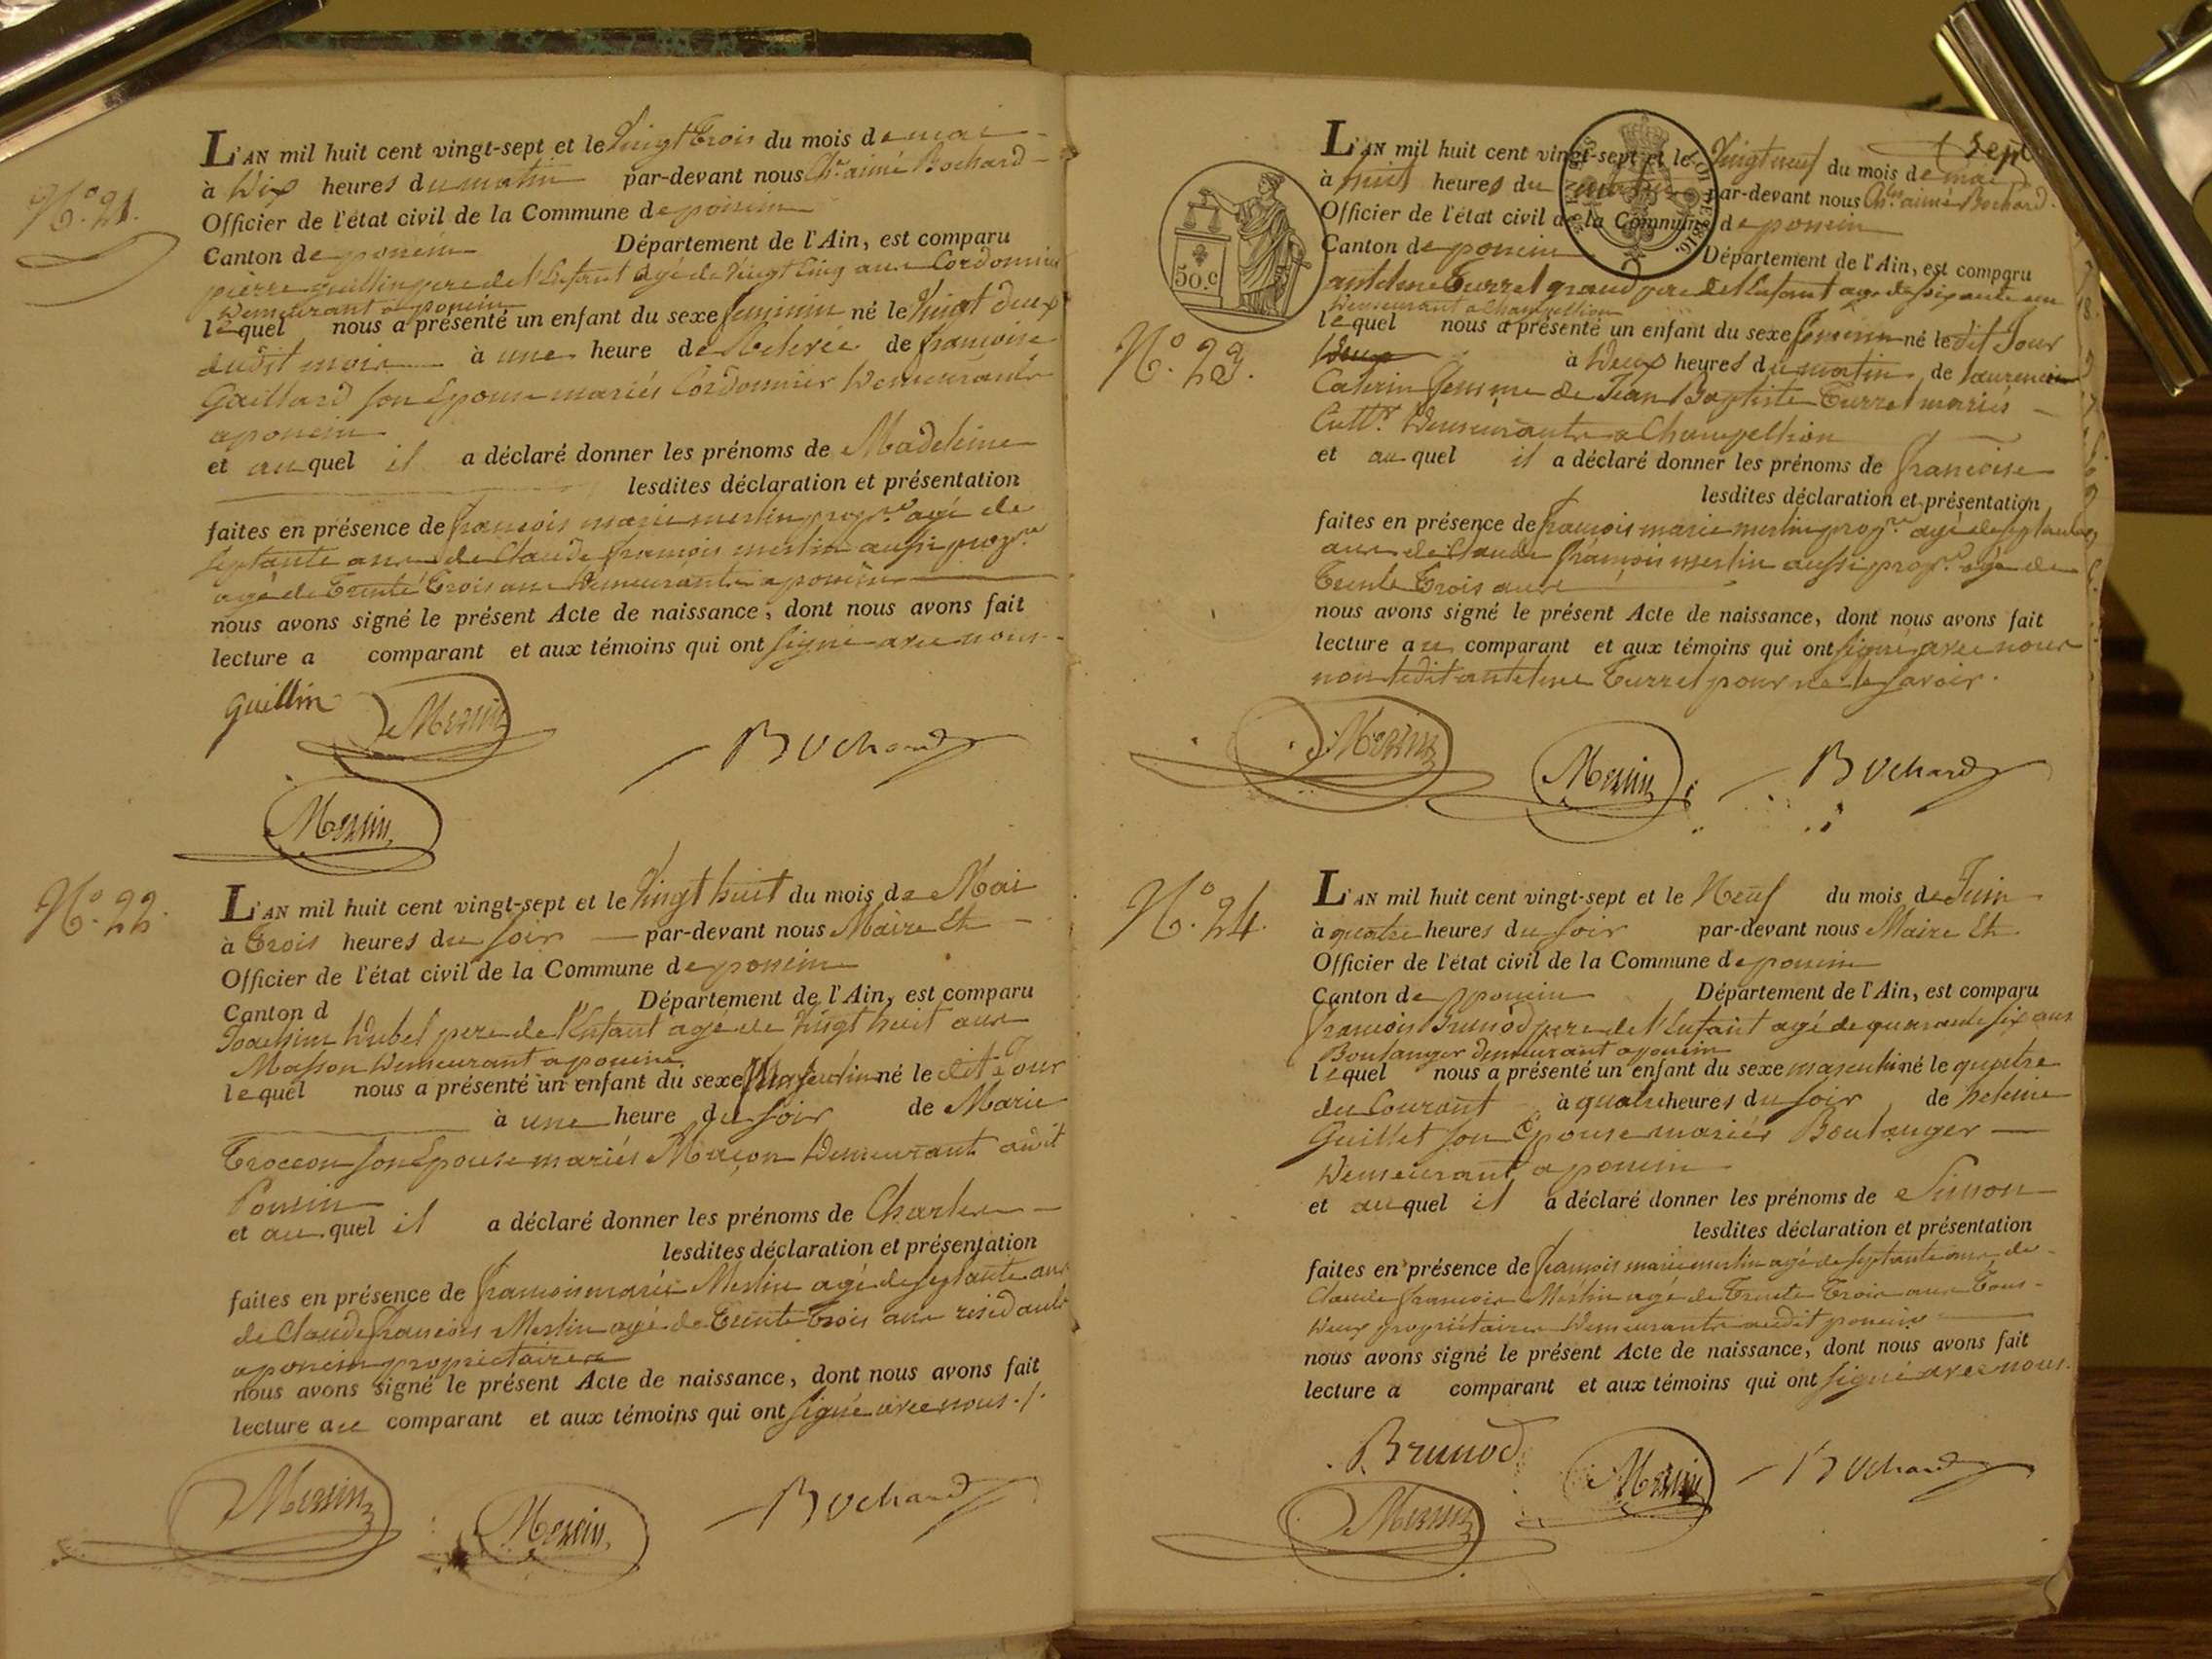 N.o 21.
L'AN mil huit cent vingt-sept et le Vingt Trois du mois de mai
à Dix heures du matin par-devant nous Ch.es aimé Bochard
Officier de l'état civil de la Commune de poncin
Canton de poncin Département de l'Ain, est comparu
pierre guillin pere de l'Enfant agé de Vingt Cinq ans Cordonnier
Demeurant a poncin
lequel nous a présenté un enfant du sexe feminin né le Vingt Deux
dudit mois à une heure de Relevée de françoise
Gaillard son Epouse mariés Cordonnier Demeurants
a poncin
et au quel il a déclaré donner les prénoms de Madeleine
lesdites déclaration et présentation
faites en présence de françois marie merlin prop.re agé de
septante ans de Claude françois merlin aussi prop.re
agé de Trente Trois ans Demeurants a poncin
nous avons signé le présent Acte de naissance, dont nous avons fait
lecture a comparant et aux témoins qui ont signé avec nous
guillin Merlin
Bochard
Merlin
N.o 22.
L'AN mil huit cent vingt-sept et le Vingt huit du mois de Mai
à Trois heures du soir par-devant nous Maire Et
Officier de l'état civil de la Commune de poncin
Canton d Département de l'Ain, est comparu
Joachim Dubel pere de l'Enfant agé de Vingt huit ans
Masson Demeurant a poncin
lequel nous a présenté un enfant du sexe Masculin né le dit Jour
à une heure du soir de Marie
Troccon son Epouse mariés Maçon Demeurant audit
Poncin
et au quel il a déclaré donner les prénoms de Charles
lesdites déclaration et présentation
faites en présence de françois marie Merlin agé de septante ans
de Claude françois Merlin agé de Trente Trois ans residants
a poncin proprietaires
nous avons signé le présent Acte de naissance, dont nous avons fait
lecture au comparant et aux témoins qui ont signé avec nous ./.
Merlin Merlin Bochard
sept
L'AN mil huit cent vingt-sept et le Vingt neuf du mois de mai
à huit heures du matin par-devant nous Ch.es aimé Bochard
Officier de l'état civil de la Commune de poncin
Canton de poncin Département de l'Ain, est comparu
50.c
antelme Turrel grand pere de l'Enfant agé de soixante un
Demeurant a Champellion
N.o 23.
lequel nous a présenté un enfant du sexe feminin né le dit Jour
à Deux heures du matin de Laurence
Caterin femme de Jean Baptiste Turrel mariés
Cult.rs Demeurants a Champellion
et au quel il a déclaré donner les prénoms de françoise
lesdites déclaration et présentation
faites en présence de françois marie merlin prop.re agé de septante
ans de Claude françois merlin aussi prop.re agé de
Trente Trois ans
nous avons signé le présent Acte de naissance, dont nous avons fait
lecture au comparant et aux témoins qui ont signé avec nous
non ledit antelme Turrel pour ne le savoir.
Merlin Merlin Bochard
N.o 24.
L'AN mil huit cent vingt-sept et le Neuf du mois de Juin
à quatre heures du soir par-devant nous Maire Et
Officier de l'état civil de la Commune de poncin
Canton de poncin Département de l'Ain, est comparu
françois Brunod pere de l'Enfant agé de quarante six ans
Boulanger demeurant a poncin
lequel nous a présenté un enfant du sexe masculin né le quatre
du Courant à quatre heures du soir de heleine
Guillet son Epouse mariés Boulanger
Demeurant a poncin
et au quel il a déclaré donner les prénoms de Simon
lesdites déclaration et présentation
faites en présence de françois marie merlin agé de septante ans de
Claude françois Merlin agé de Trente Trois ans Tous
Deux propriétaires Demeurants audit poncin
nous avons signé le présent Acte de naissance, dont nous avons fait
lecture a comparant et aux témoins qui ont signé avec nous.
Brunod Merlin Bochard
Merlin